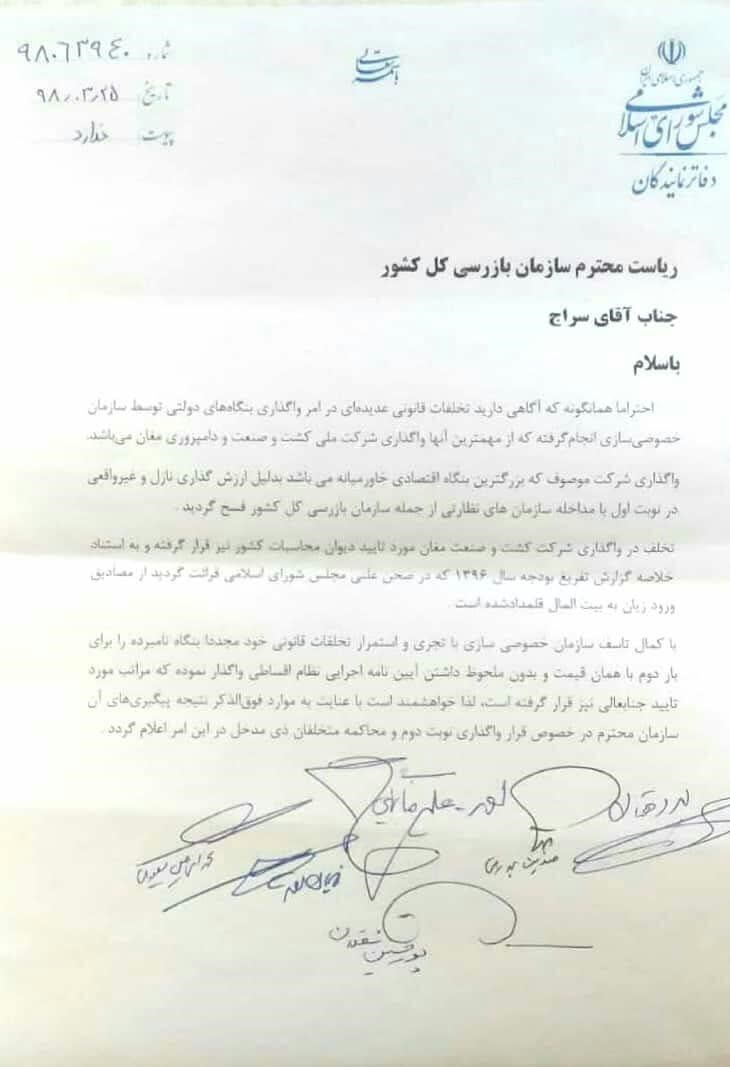 جمهوری اسلامی ایران
مجلس شورای اسلامی
دفاتر نمایندگان
باسمه تعالی
شماره ۹۸۰۶۳۹۴۰
تاریخ ۹۸/۰۳/۲۵
پیوست ندارد
ریاست محترم سازمان بازرسی کل کشور
جناب آقای سراج
باسلام
احتراما همانگونه که آگاهی دارید تخلفات قانونی عدیده‌ای در امر واگذاری بنگاه‌های دولتی توسط سازمان
خصوصی‌سازی انجام‌گرفته که از مهمترین آنها واگذاری شرکت ملی کشت و صنعت و دامپروری مغان می‌باشد.
واگذاری شرکت موصوف که بزرگترین بنگاه اقتصادی خاورمیانه می باشد بدلیل ارزش گذاری نازل و غیرواقعی
در نوبت اول با مداخله سازمان های نظارتی از جمله سازمان بازرسی کل کشور فسخ گردید .
تخلف در واگذاری شرکت کشت و صنعت مغان مورد تایید دیوان محاسبات کشور نیز قرار گرفته و به استناد
خلاصه گزارش تفریغ بودجه سال ۱۳۹۶ که در صحن علنی مجلس شورای اسلامی قرائت گردید از مصادیق
ورود زیان به بیت المال قلمدادشده است .
با کمال تاسف سازمان خصوصی سازی با تجری و استمرار تخلفات قانونی خود مجددا بنگاه نامبرده را برای
بار دوم با همان قیمت و بدون ملحوظ داشتن آیین نامه اجرایی نظام اقساطی واگذار نموده که مراتب مورد
تایید جنابعالی نیز قرار گرفته است، لذا خواهشمند است با عنایت به موارد فوق‌الذکر نتیجه پیگیری‌های آن
سازمان محترم در خصوص قرار واگذاری نوبت دوم و محاکمه متخلفان ذی مدخل در این امر اعلام گردد .